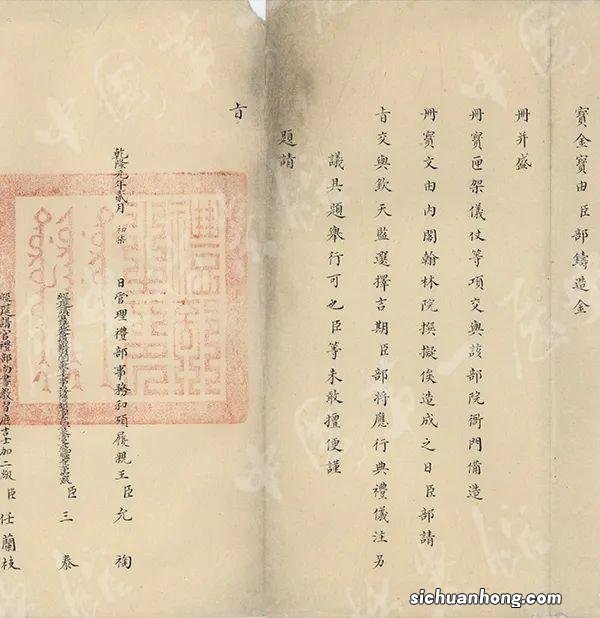 寳金寳由臣部鑄造金
冊并盛
冊寳匣架儀仗等項交與該部院衙門俻造
冊寳文由内閣翰林院撰擬俟造成之日臣部請
旨交與欽天監選擇吉期臣部將應行典禮儀注另
議具題舉行可也臣等未敢擅便謹
題請
旨
乾隆元年貳月 初柒 日管理禮部事務和碩履親王臣允祹
臣三泰
經筵講官禮部尚書教習庶吉士加二級臣任蘭枝
sichuanhong.com